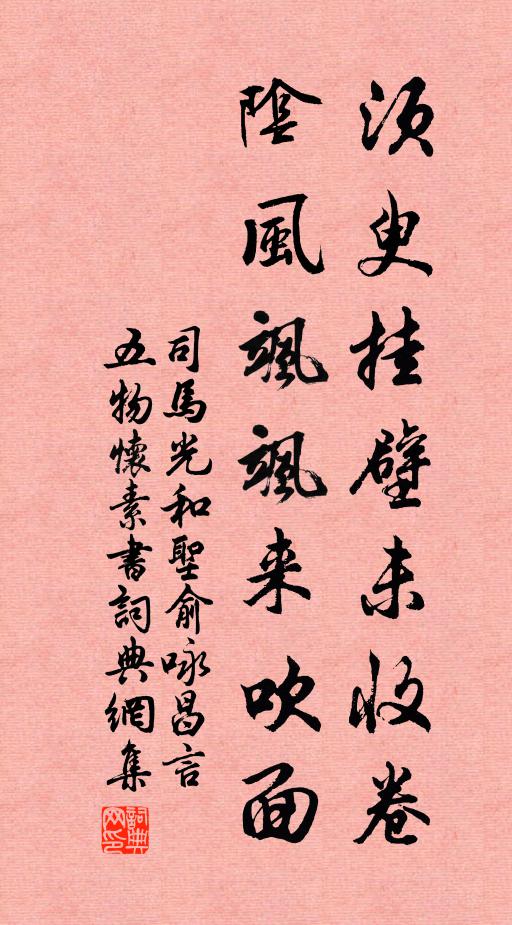 須臾挂壁未收卷
陰風颯颯来吹面
司馬光和聖俞咏昌言
五物懷素書詞典網集
詞典网印